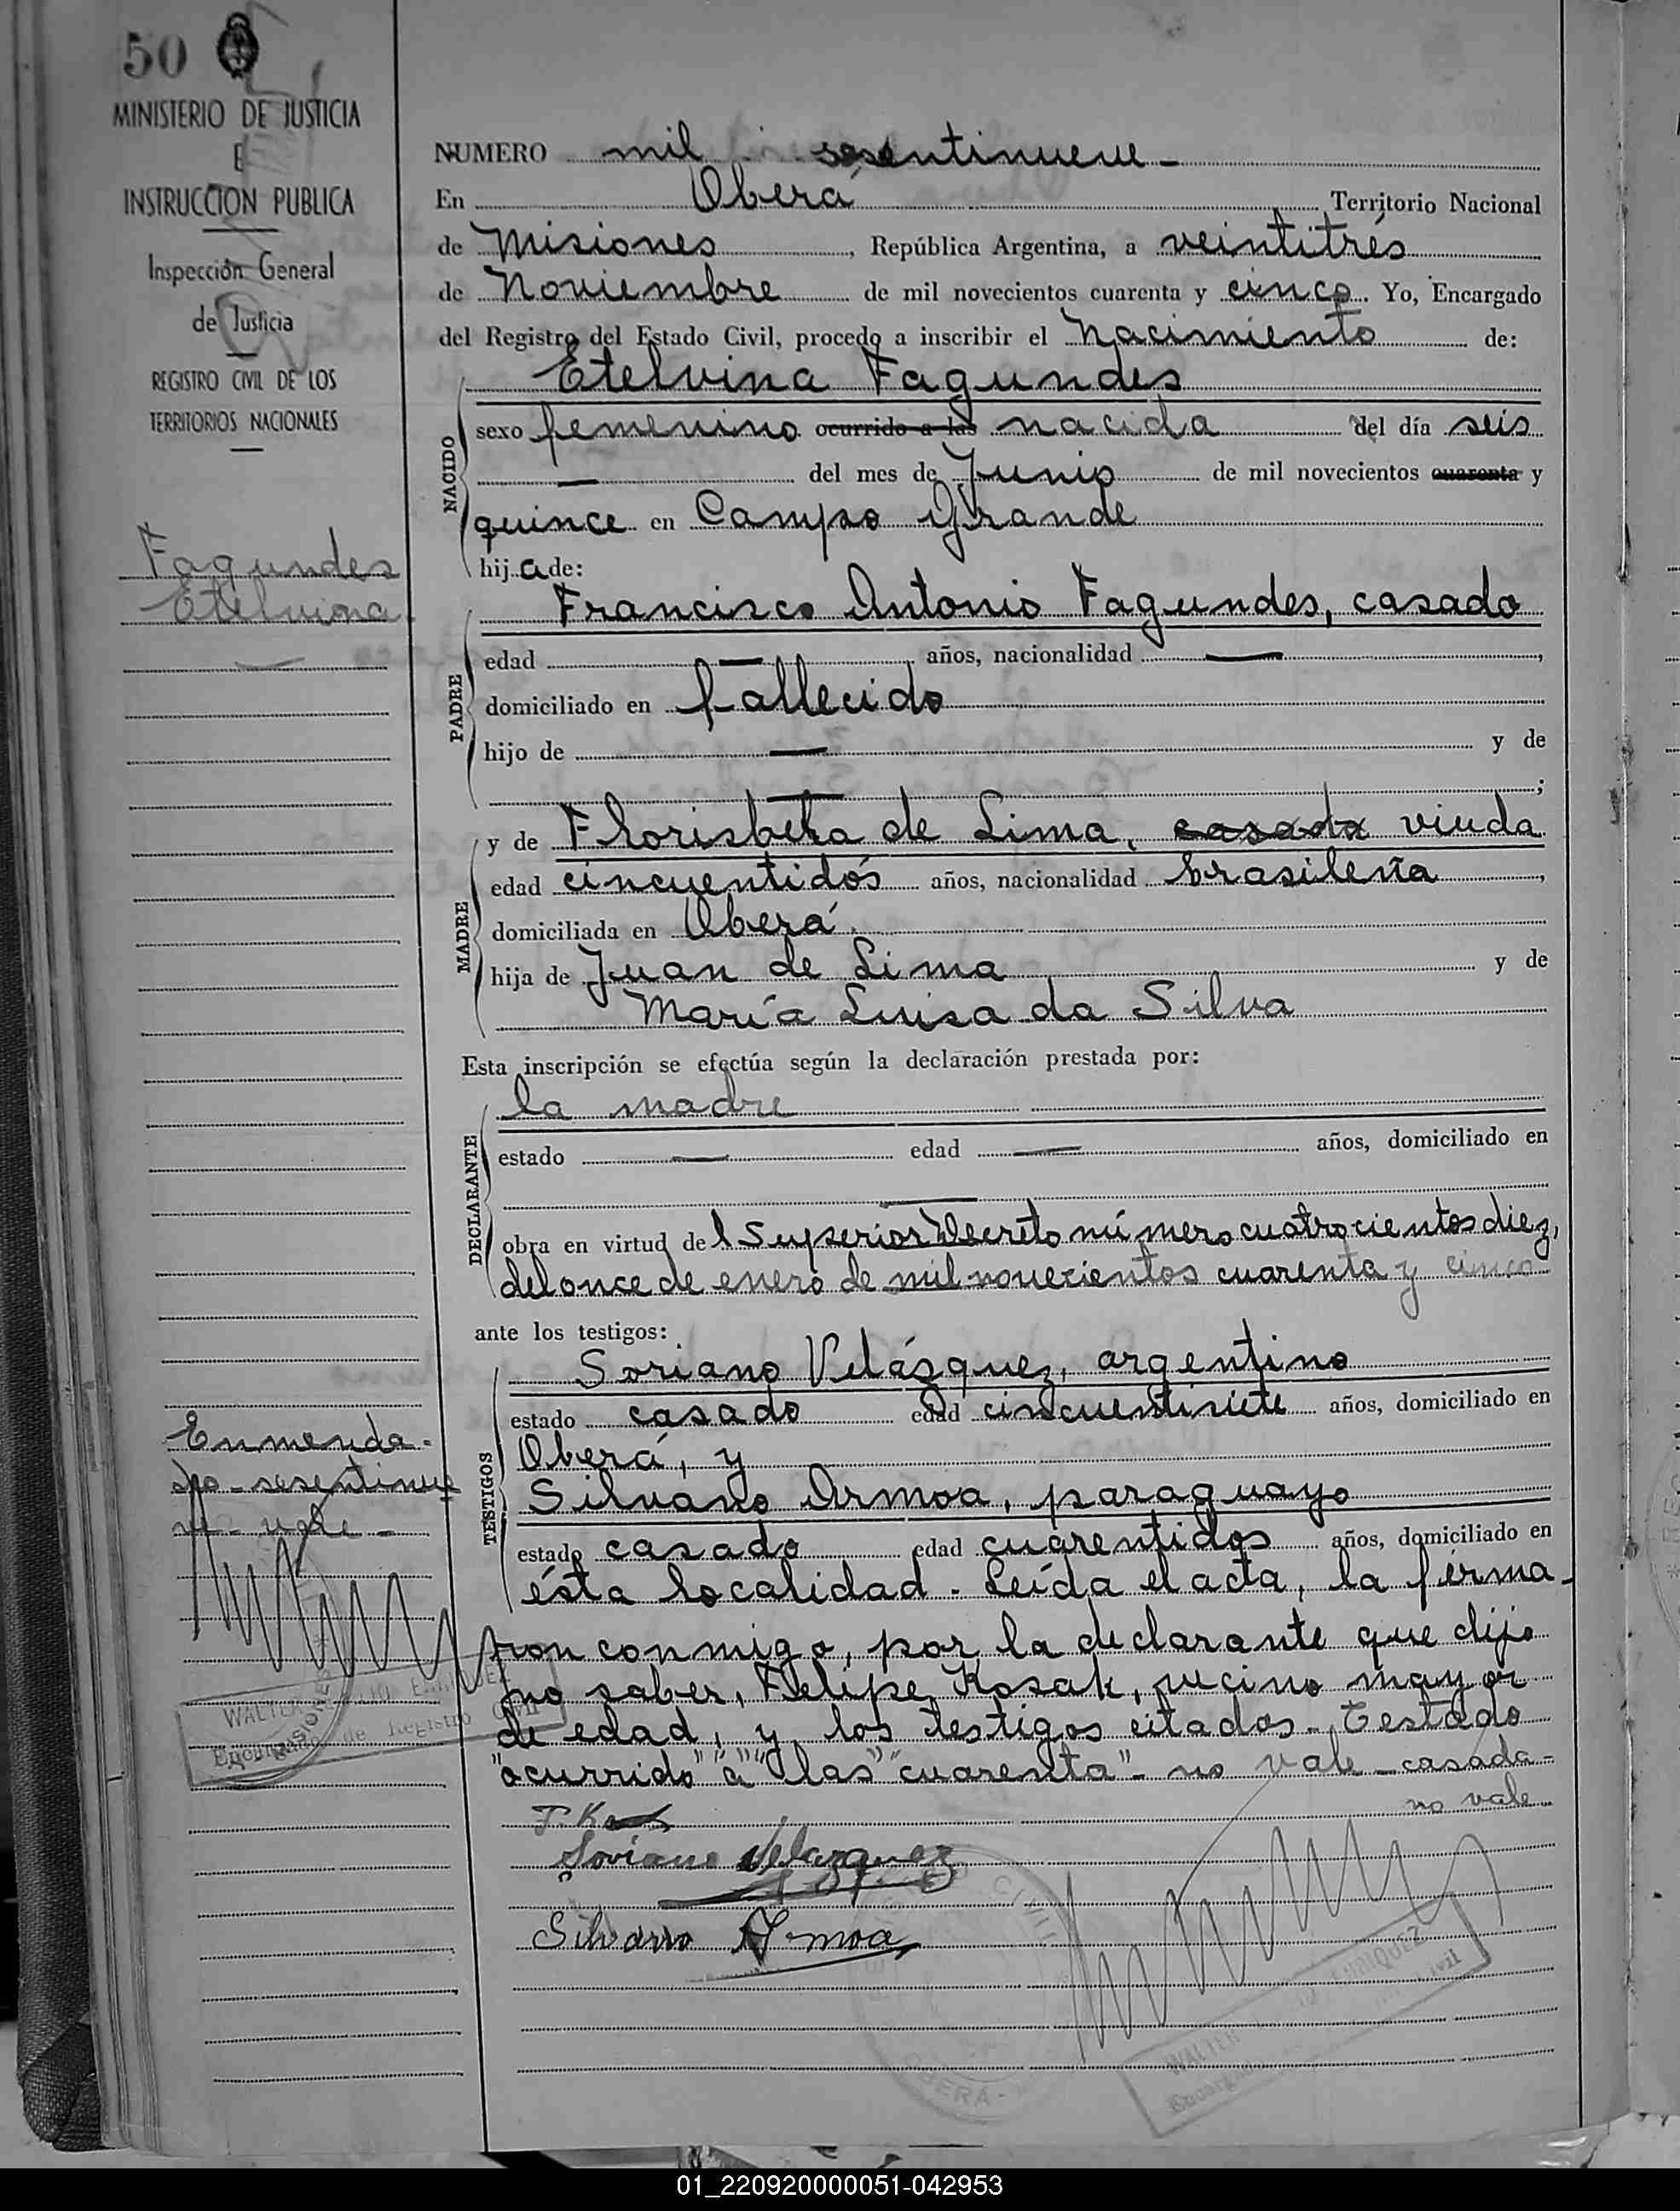 50
MINISTERIO DE JUSTICIA
E
INSTRUCCION PUBLICA
Inspección General
de Justicia
REGISTRO CIVIL DE LOS
TERRITORIOS NACIONALES
Fagundes
Etelvina
NUMERO mil sesentinueve -
En Oberá Territorio Nacional
de Misiones, República Argentina, a veintitrés
de Noviembre de mil novecientos cuarenta y cinco. Yo, Encargado
del Registro del Estado Civil, procedo a inscribir el Nacimiento de:
NACIDO
Etelvina Fagundes
sexo femenino ocurrido a las nacida del día seis
— del mes de Junio de mil novecientos cuarenta y
quince en Campo Grande
hija de:
PADRE
Francisco Antonio Fagundes, casado
edad — años, nacionalidad —,
domiciliado en fallecido
hijo de — y de
— ;
MADRE
y de Florisbela de Lima, casada viuda
edad cincuentidós años, nacionalidad brasileña,
domiciliada en Oberá
hija de Juan de Lima y de
María Luisa da Silva
Esta inscripción se efectúa según la declaración prestada por:
DECLARANTE
la madre
estado — edad — años, domiciliado en
—
obra en virtud del Superior Decreto número cuatrocientos diez,
del once de enero de mil novecientos cuarenta y cinco
ante los testigos:
TESTIGOS
Soriano Velásquez, argentino
estado casado edad cincuentisiete años, domiciliado en
Oberá, y
Silvano Armoa, paraguayo
estado casado edad cuarentidos años, domiciliado en
ésta localidad. Leída el acta, la firma-
ron conmigo, por la declarante que dijo
no saber, Felipe Kosak, vecino mayor
de edad, y los testigos citados. Testado
"ocurrido" "a" "las" "cuarenta" - no vale - casada -
no vale
Enmenda-
do - sesentinue
ve - vale -
WALTER
Encargado de Registro Civil
MISIONES
Soriano Velazquez
Silvano Armoa
WALTER
OBERÁ -
01_220920000051-042953